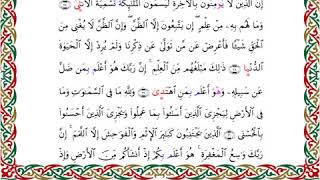 إِنَّ ٱلَّذِينَ لَا يُؤْمِنُونَ بِٱلْآخِرَةِ لَيُسَمُّونَ ٱلْمَلَٰٓئِكَةَ تَسْمِيَةَ ٱلْأُنثَىٰ
وَمَا لَهُم بِهِۦ مِنْ عِلْمٍ ۖ إِن يَتَّبِعُونَ إِلَّا ٱلظَّنَّ ۖ وَإِنَّ ٱلظَّنَّ لَا يُغْنِى مِنَ
ٱلْحَقِّ شَيْـًٔا فَأَعْرِضْ عَن مَّن تَوَلَّىٰ عَن ذِكْرِنَا وَلَمْ يُرِدْ إِلَّا ٱلْحَيَوٰةَ
ٱلدُّنْيَا ذَٰلِكَ مَبْلَغُهُم مِّنَ ٱلْعِلْمِ ۚ إِنَّ رَبَّكَ هُوَ أَعْلَمُ بِمَن ضَلَّ
عَن سَبِيلِهِۦ وَهُوَ أَعْلَمُ بِمَنِ ٱهْتَدَىٰ وَلِلَّهِ مَا فِى ٱلسَّمَٰوَٰتِ وَمَا
فِى ٱلْأَرْضِ لِيَجْزِىَ ٱلَّذِينَ أَسَٰٓـُٔوا۟ بِمَا عَمِلُوا۟ وَيَجْزِىَ ٱلَّذِينَ أَحْسَنُوا۟
بِٱلْحُسْنَى ٱلَّذِينَ يَجْتَنِبُونَ كَبَٰٓئِرَ ٱلْإِثْمِ وَٱلْفَوَٰحِشَ إِلَّا ٱللَّمَمَ ۚ إِنَّ
رَبَّكَ وَٰسِعُ ٱلْمَغْفِرَةِ ۚ هُوَ أَعْلَمُ بِكُمْ إِذْ أَنشَأَكُم مِّنَ ٱلْأَرْضِ وَإِذْ